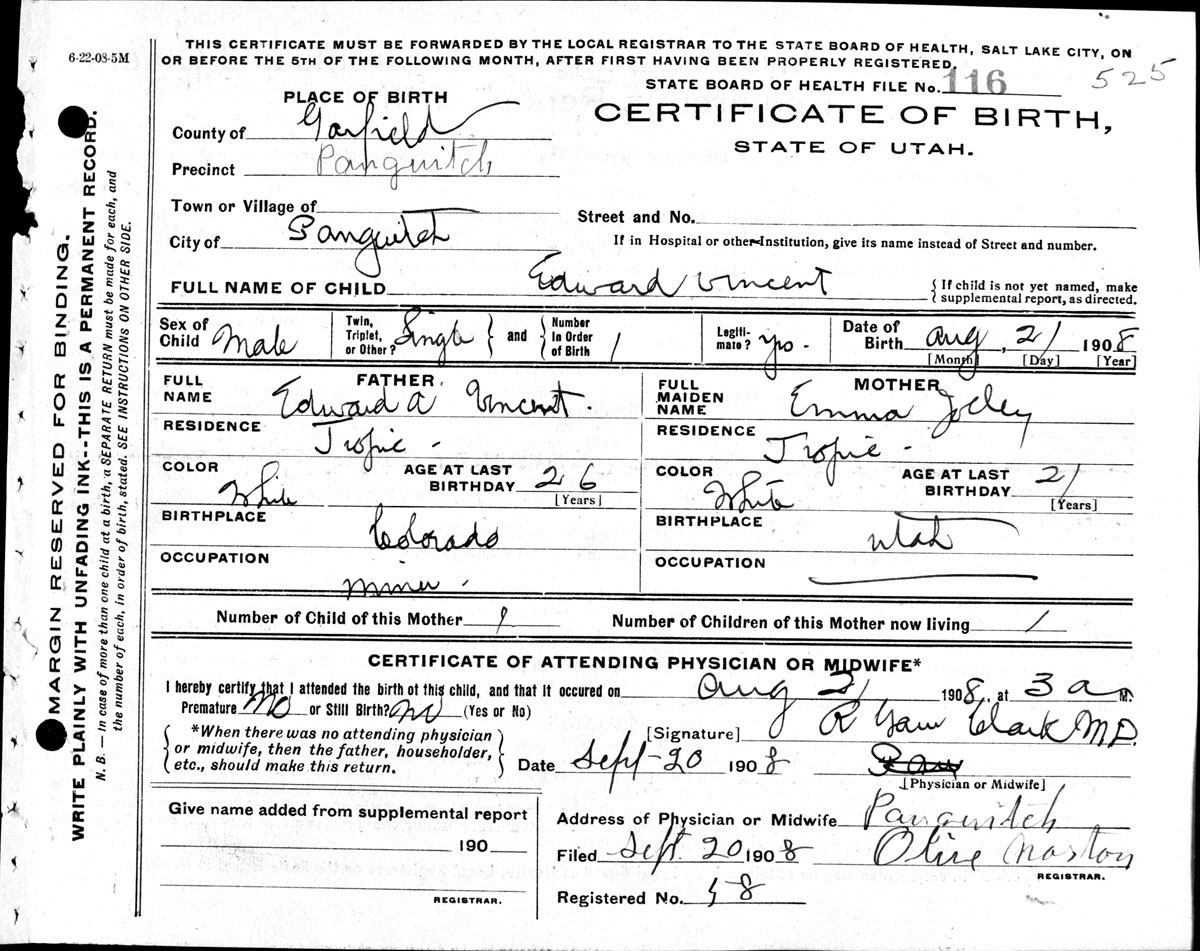 6-22-08-5M
THIS CERTIFICATE MUST BE FORWARDED BY THE LOCAL REGISTRAR TO THE STATE BOARD OF HEALTH, SALT LAKE CITY, ON
OR BEFORE THE 5TH OF THE FOLLOWING MONTH, AFTER FIRST HAVING BEEN PROPERLY REGISTERED.
STATE BOARD OF HEALTH FILE No. 116 525
CERTIFICATE OF BIRTH,
STATE OF UTAH.
PLACE OF BIRTH
County of Garfield
Precinct Panguitch
Town or Village of
City of Panguitch
Street and No.
If in Hospital or other Institution, give its name instead of Street and number.
FULL NAME OF CHILD Edward Vincent { If child is not yet named, make
supplemental report, as directed.
Sex of Child Male Twin, Triplet, or Other? Single } and { Number In Order of Birth 1 Legiti-mate? yes - Date of Birth Aug, 21 1908
[Month] [Day] [Year]
FATHER
FULL NAME Edward A Vincent.
RESIDENCE Tropic -
COLOR White AGE AT LAST BIRTHDAY 26 [Years]
BIRTHPLACE Colorado
OCCUPATION miner.
MOTHER
FULL MAIDEN NAME Emma
RESIDENCE Tropic -
COLOR White AGE AT LAST BIRTHDAY 21 [Years]
BIRTHPLACE Utah
OCCUPATION
Number of Child of this Mother 1 Number of Children of this Mother now living 1
CERTIFICATE OF ATTENDING PHYSICIAN OR MIDWIFE*
I hereby certify that I attended the birth of this child, and that it occured on Aug 21 1908, at 3 a M.
Premature No or Still Birth? No (Yes or No)
{ *When there was no attending physician
or midwife, then the father, householder,
etc., should make this return. }
[Signature] R Clark M.D.
Date Sept-20 1908
[Physician or Midwife]
Give name added from supplemental report
190
REGISTRAR.
Address of Physician or Midwife Panguitch
Filed Sept. 20 1908 Olive Norton
REGISTRAR.
Registered No. 58
MARGIN RESERVED FOR BINDING.
WRITE PLAINLY WITH UNFADING INK--THIS IS A PERMANENT RECORD.
N. B. — In case of more than one child at a birth, a SEPARATE RETURN must be made for each, and
the number of each, in order of birth, stated. SEE INSTRUCTIONS ON OTHER SIDE.